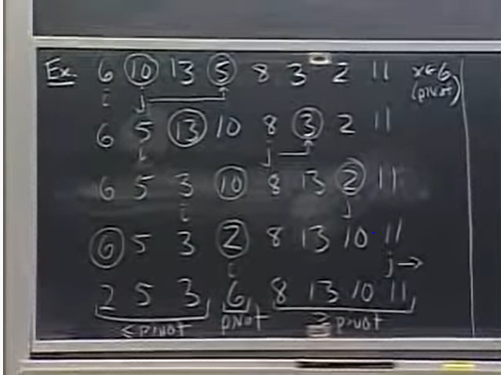 Ex. 6 10 13 5 8 3 2 11 x←6
i j (pivot)
6 5 13 10 8 3 2 11
i j
6 5 3 10 8 13 2 11
i j
6 5 3 2 8 13 10 11
i j →
2 5 3 6 8 13 10 11
≤ pivot pivot ≥ pivot